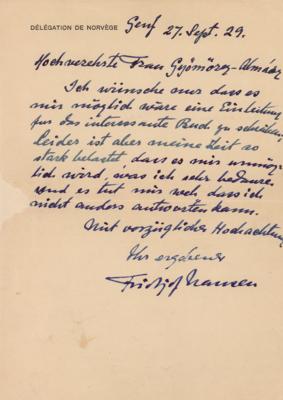 DÉLÉGATION DE NORVÈGE
Genf 27. Sept. 29.
Hochverehrte Frau Györnörey-Almásy
Ich wünsche nur dass es
mir möglich wäre eine Einleitung
für das interessante Buch zu schreiben
leider ist aber meine Zeit so
stark belastet, dass es mir unmög-
lich wird, was ich sehr bedaure
und es tut mir weh dass ich
nicht anders antworten kann.
Mit vorzüglicher Hochachtung
Ihr ergebener
Fridtjof Nansen